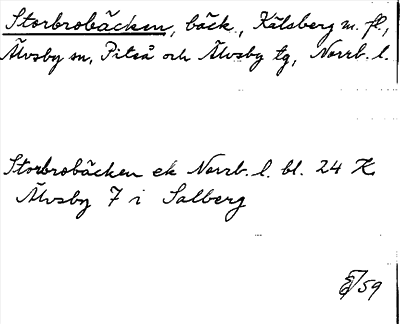 Storbrobäcken, bäck, Kälsberg m. fl.,
Älvsby sn, Piteå och Älvsby tg, Norrb. l.
Storbrobäcken ek Norrb. l. bl. 24 K
Älvsby 7 i Salberg
59